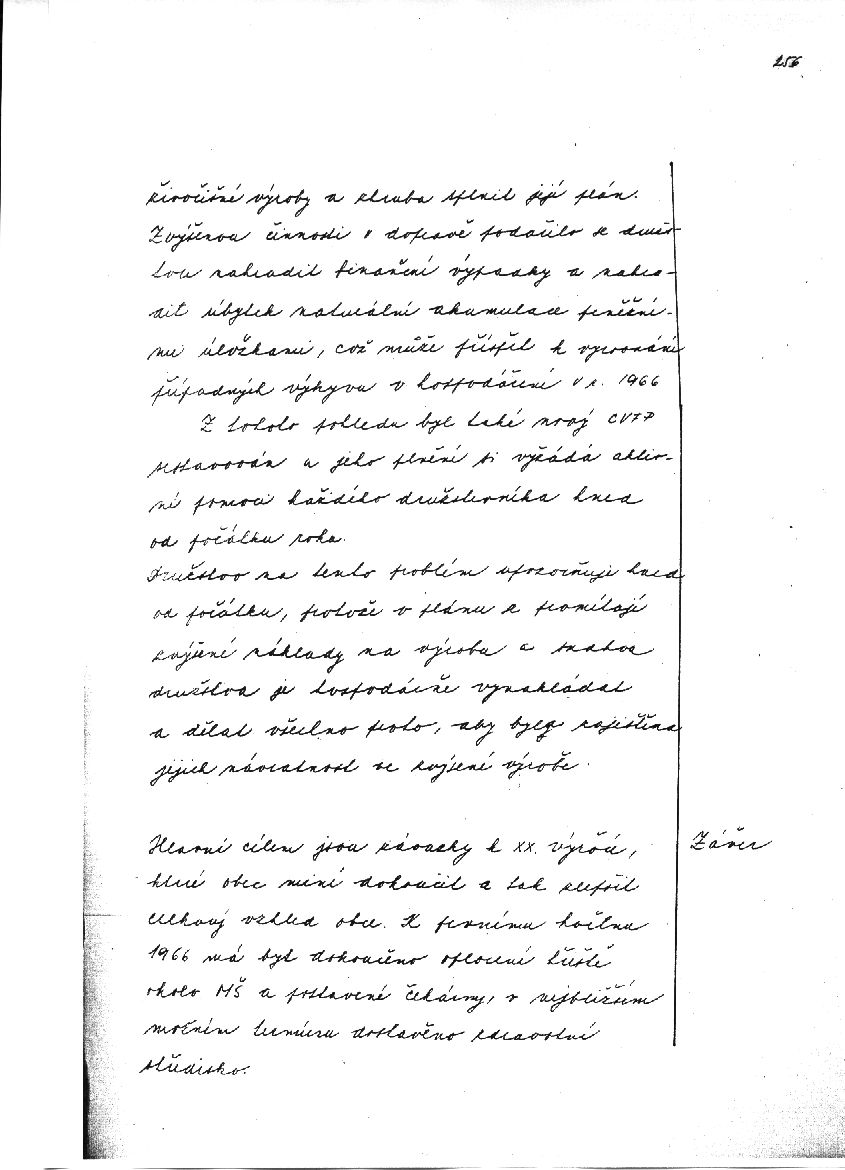 256
živočišné výroby a zhruba splnil její plán.
Zvýšenou činností v dopravě podařilo se družs-
tvu nahradit finanční výpadky a nahra-
dit úbytek naturální akumulace peněžní-
mi úložkami, což může přispět k vyrovnání
případných výkyvů v hospodaření v r. 1966
Z tohoto pohledu byl také nový CVFP
sestavován a jeho plnění si vyžádá aktiv-
ní pomoci každého družstevníka hned
od počátku roku.
Družstvo na tento problém upozorňuje hned
od počátku, protože v plánu se promítají
zvýšené náklady na výrobu a snahou
družstva je hospodárně vynakládat
a dělat všechno proto, aby byla zajištěna
jejich návratnost ve zvýšené výrobě.
Hlavní cílem jsou závazky k XX. výročí,
Závěr
které obec míní dokončit a tak zlepšit
celkový vzhled obce. K prvnímu kvítnu
1966 má být dokončeno oplocení hřiště
okolo MŠ a postavené čekárny, v nejbližším
možném termínu dostavěno zdravotní
středisko.